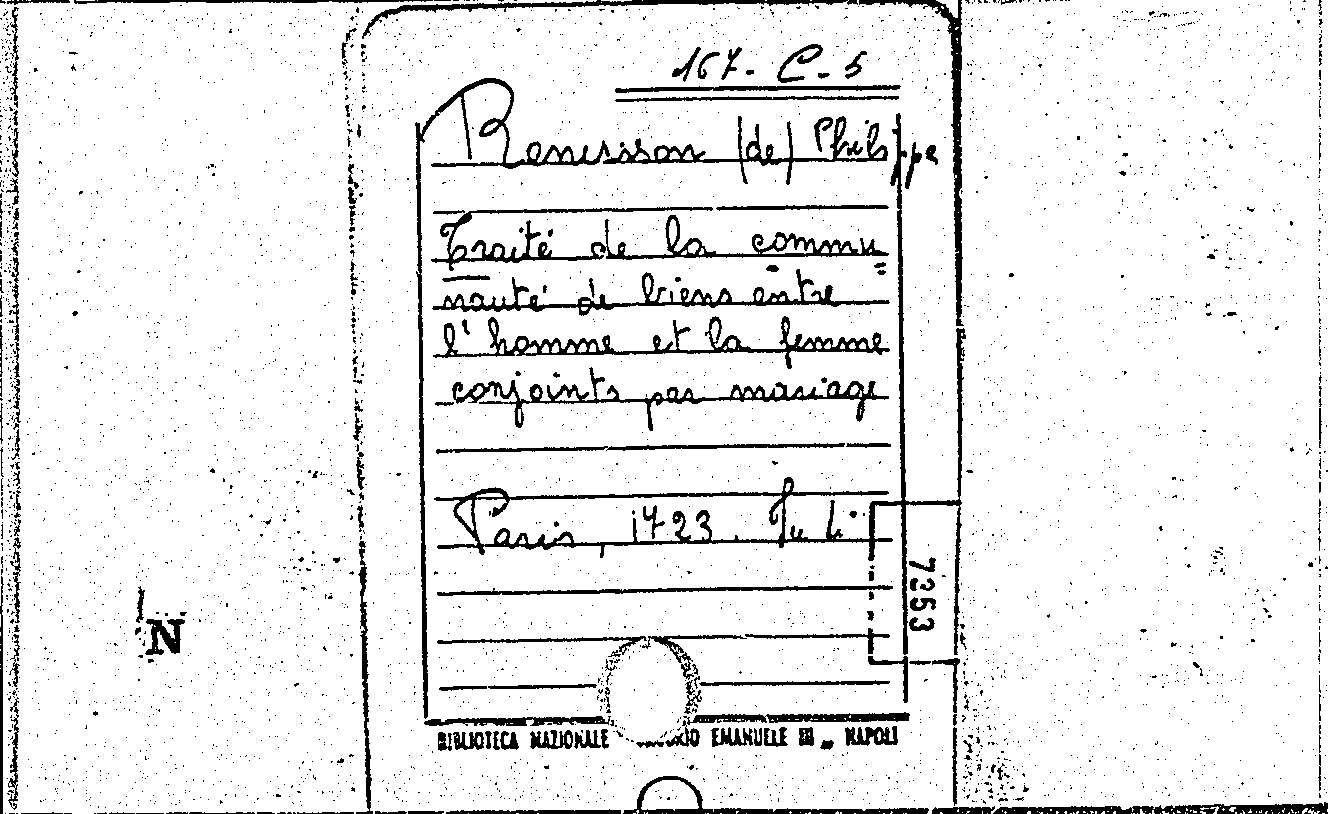 167. C. 5
Renusson (de) Philippe
Traité de la commu
nauté de biens entre
l'homme et la femme
conjoints par mariage
Paris, 1723.
7353
N
BIBLIOTECA NAZIONALE EMANUELE III - NAPOLI